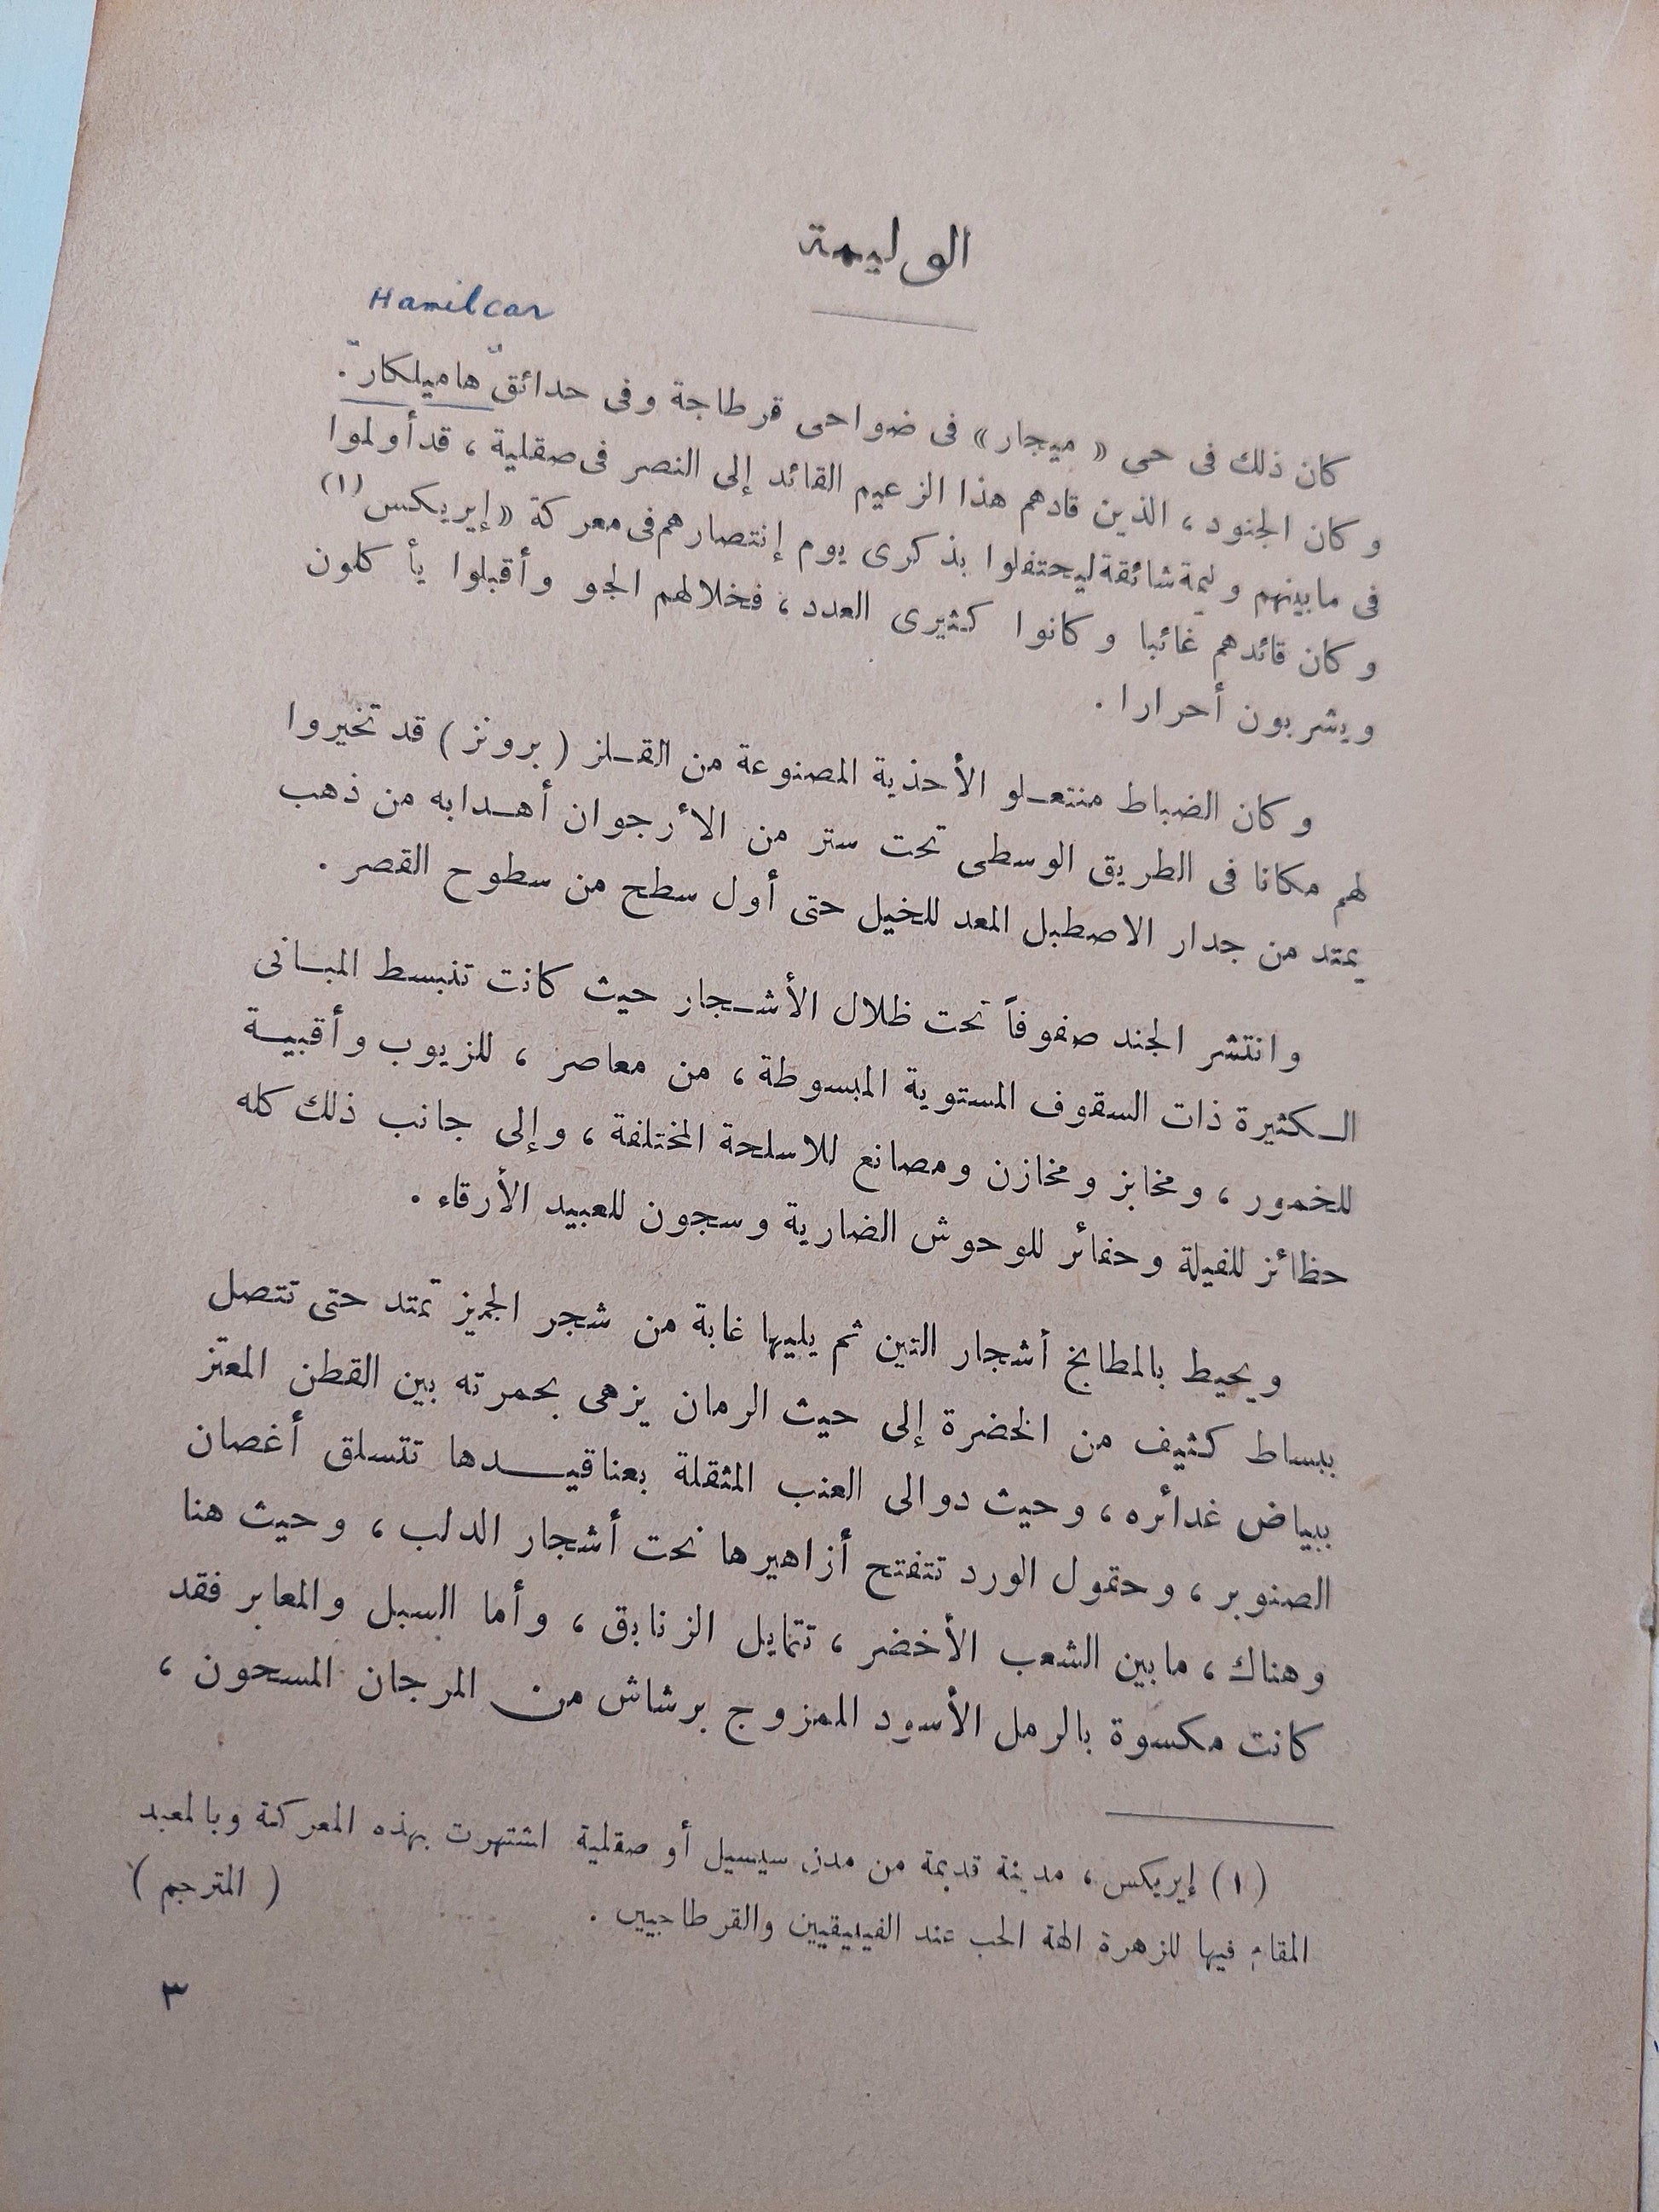 الوليمة
Hamilcar
كان ذلك فى حى « ميجار » فى ضواحى قرطاجة وفى حدائق "هاميلكار".
وكان الجنود ، الذين قادهم هذا الزعيم القائد إلى النصر فى صقلية ، قد أولموا
فى ما بينهم وليمة شائقة ليحتفلوا بذكرى يوم إنتصارهم فى معركة « إيريكس (١)
وكان قائدهم غائبا وكانوا كثيرى العدد ، فخلا لهم الجو وأقبلوا يأكلون
ويشربون أحرارا .
وكان الضباط منتعلو الأحذية المصنوعة من القلز ( برونز ) قد تخيروا
لهم مكانا فى الطريق الوسطى تحت ستر من الأرجوان أهدابه من ذهب
يمتد من جدار الاصطبل المعد للخيل حتى أول سطح من سطوح القصر .
وانتشر الجند صفوفاً تحت ظلال الأشجار حيث كانت تنبسط المبانى
الكثيرة ذات السقوف المستوية المبسوطة ، من معاصر ، للزيوب وأقبية
للخمور ، ومخابز ومخازن ومصانع للاسلحة المختلفة ، وإلى جانب ذلك كله
حظائز للفيلة وحفائر للوحوش الضارية وسجون للعبيد الأرقاء .
ويحيط بالمطابخ أشجار التين ثم يليها غابة من شجر الجميز تمتد حتى تتصل
ببساط كثيف من الخضرة إلى حيث الرمان يزهى بحمرته بين القطن المعتز
ببياض غدائره ، وحيث دوالى العنب المثقلة بعناقيدها تتسلق أغصان
الصنوبر ، وحقول الورد تتفتح أزاهيرها تحت أشجار الدلب ، وحيث هنا
وهناك ، ما بين الشعب الأخضر ، تتمايل الزنابق ، وأما السبل والمعابر فقد
كانت مكسوة بالرمل الأسود الممزوج برشاش من المرجان المسحون ،
(١) إيريكس ، مدينة قديمة من مدن سيسيل أو صقلية اشتهرت بهذه المعركة وبالمعبد
المقام فيها للزهرة الهة الحب عند الفينيقيين والقرطاجيين . ( المترجم )
٣